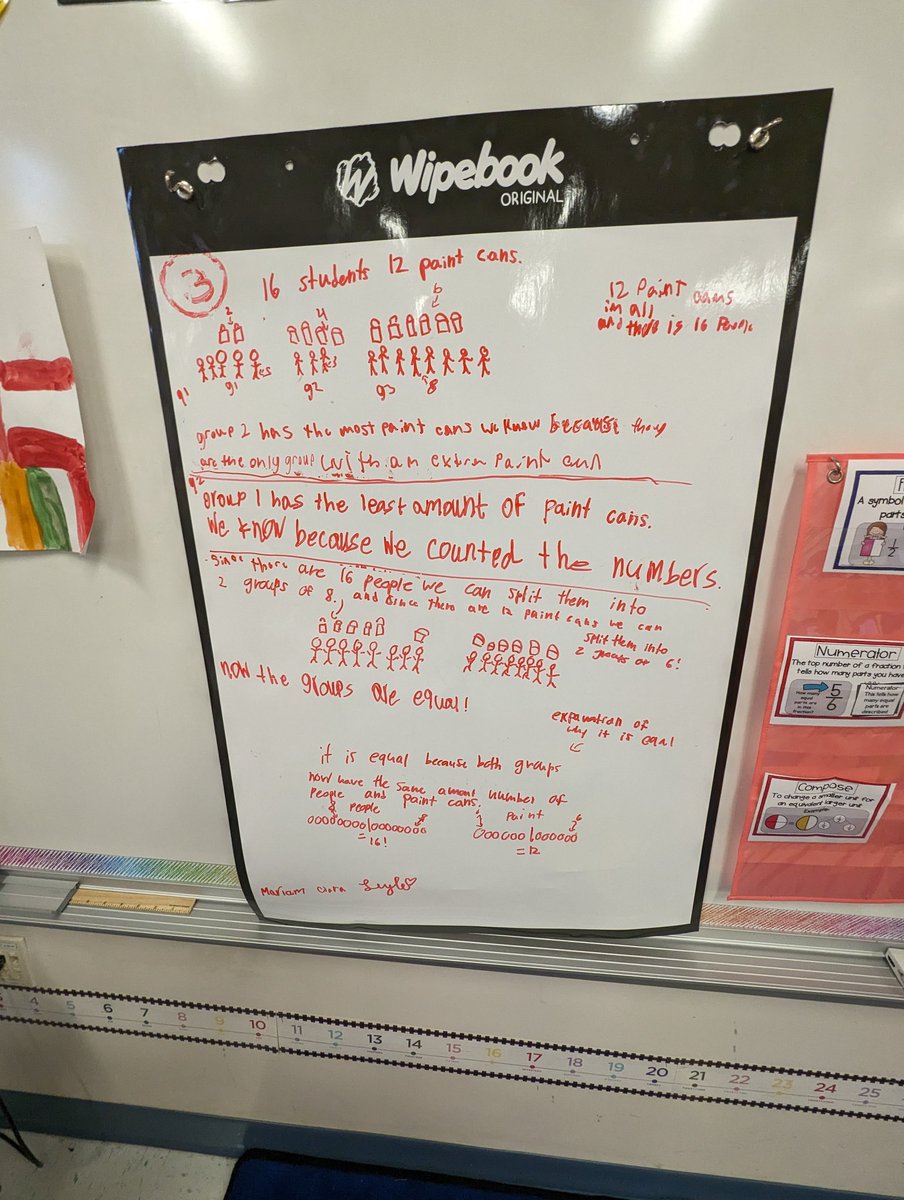 Wipebook
ORIGINAL
3
16 students 12 paint cans.
12 Paint cans
in all
and there is 16
2
4
6
5
3
8
g1
g1
g2
g3
group 2 has the most paint cans we know because they
are the only group with an extra paint can
g2
group 1 has the least amount of paint cans.
We know because we counted the numbers.
Since there are 16 people we can split them into
2 groups of 8, and since there are 12 paint cans we can
split them into
2 groups of 6!
now the groups are equal!
expanation of
why it is equal
it is equal because both groups
now have the same amount number of
people and paint cans.
8 people
8
Paint
6
= 16!
= 12
Mariam
A symbol
parts
1/2
Numerator
The top number of a fraction
tells how many parts you have
How many equal parts are in this fraction?
5/6
Numerator
This tells how many equal parts are described
Compose
To change a smaller unit for
an equivalent larger unit
Example:
4 5 6 7 8 9 10 11 12 13 14 15 16 17 18 19 20 21 22 23 24 25